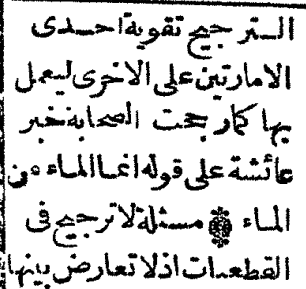 الترجيح تقوية احدى
الامارتين على الاخرى ليعمل
بها كما رجحت الصحابة خبر
عائشة على قوله انما الماء من
الماء ۞ مسئلة لا ترجيح فى
القطعيات اذ لا تعارض بينها